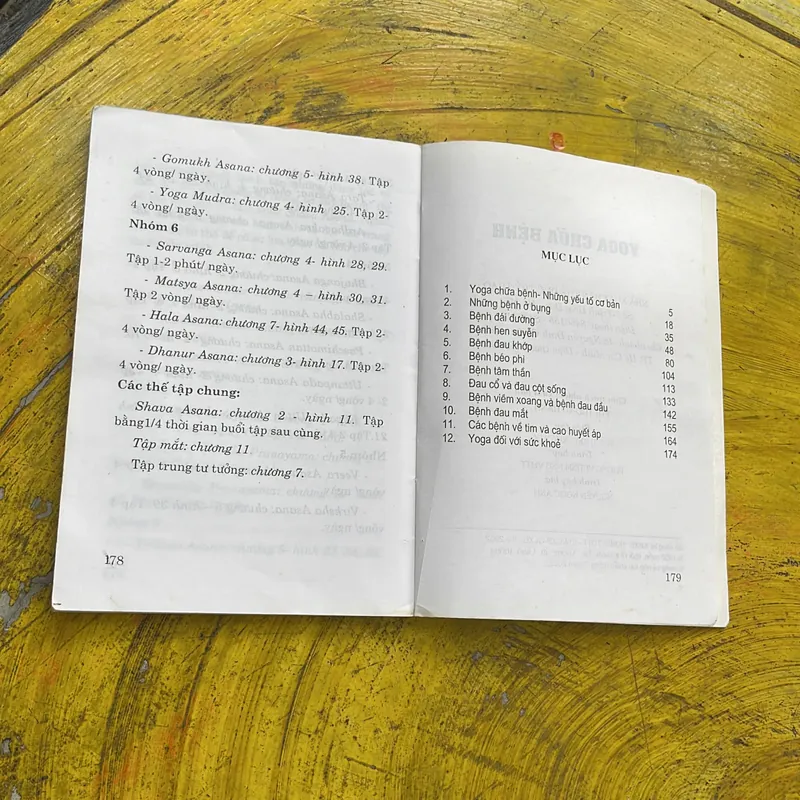 - Gomukh Asana: chương 5- hình 38. Tập
4 vòng/ ngày.
- Yoga Mudra: chương 4- hình 25. Tập 2-
4 vòng/ ngày.
Nhóm 6
- Sarvanga Asana: chương 4- hình 28, 29.
Tập 1-2 phút/ ngày.
- Matsya Asana: chương 4 – hình 30, 31.
Tập 2 vòng/ ngày.
- Hala Asana: chương 7- hình 44, 45. Tập 2-
4 vòng/ ngày.
- Dhanur Asana: chương 3- hình 17. Tập 2-
4 vòng/ ngày.
Các thế tập chung:
Shava Asana: chương 2 - hình 11. Tập
bằng1/4 thời gian buổi tập sau cùng.
Tập mắt: chương 11
Tập trung tư tưởng: chương 7.
178
YOGA CHỮA BỆNH
MỤC LỤC
1. Yoga chữa bệnh- Những yếu tố cơ bản 5
2. Những bệnh ở bụng 18
3. Bệnh đái đường 35
4. Bệnh hen suyễn 48
5. Bệnh đau khớp 80
6. Bệnh béo phì 104
7. Bệnh tâm thần 113
8. Đau cổ và đau cột sống 133
9. Bệnh viêm xoang và bệnh đau đầu 142
10. Bệnh đau mắt 155
11. Các bệnh về tim và cao huyết áp 164
12. Yoga đối với sức khoẻ 174
179